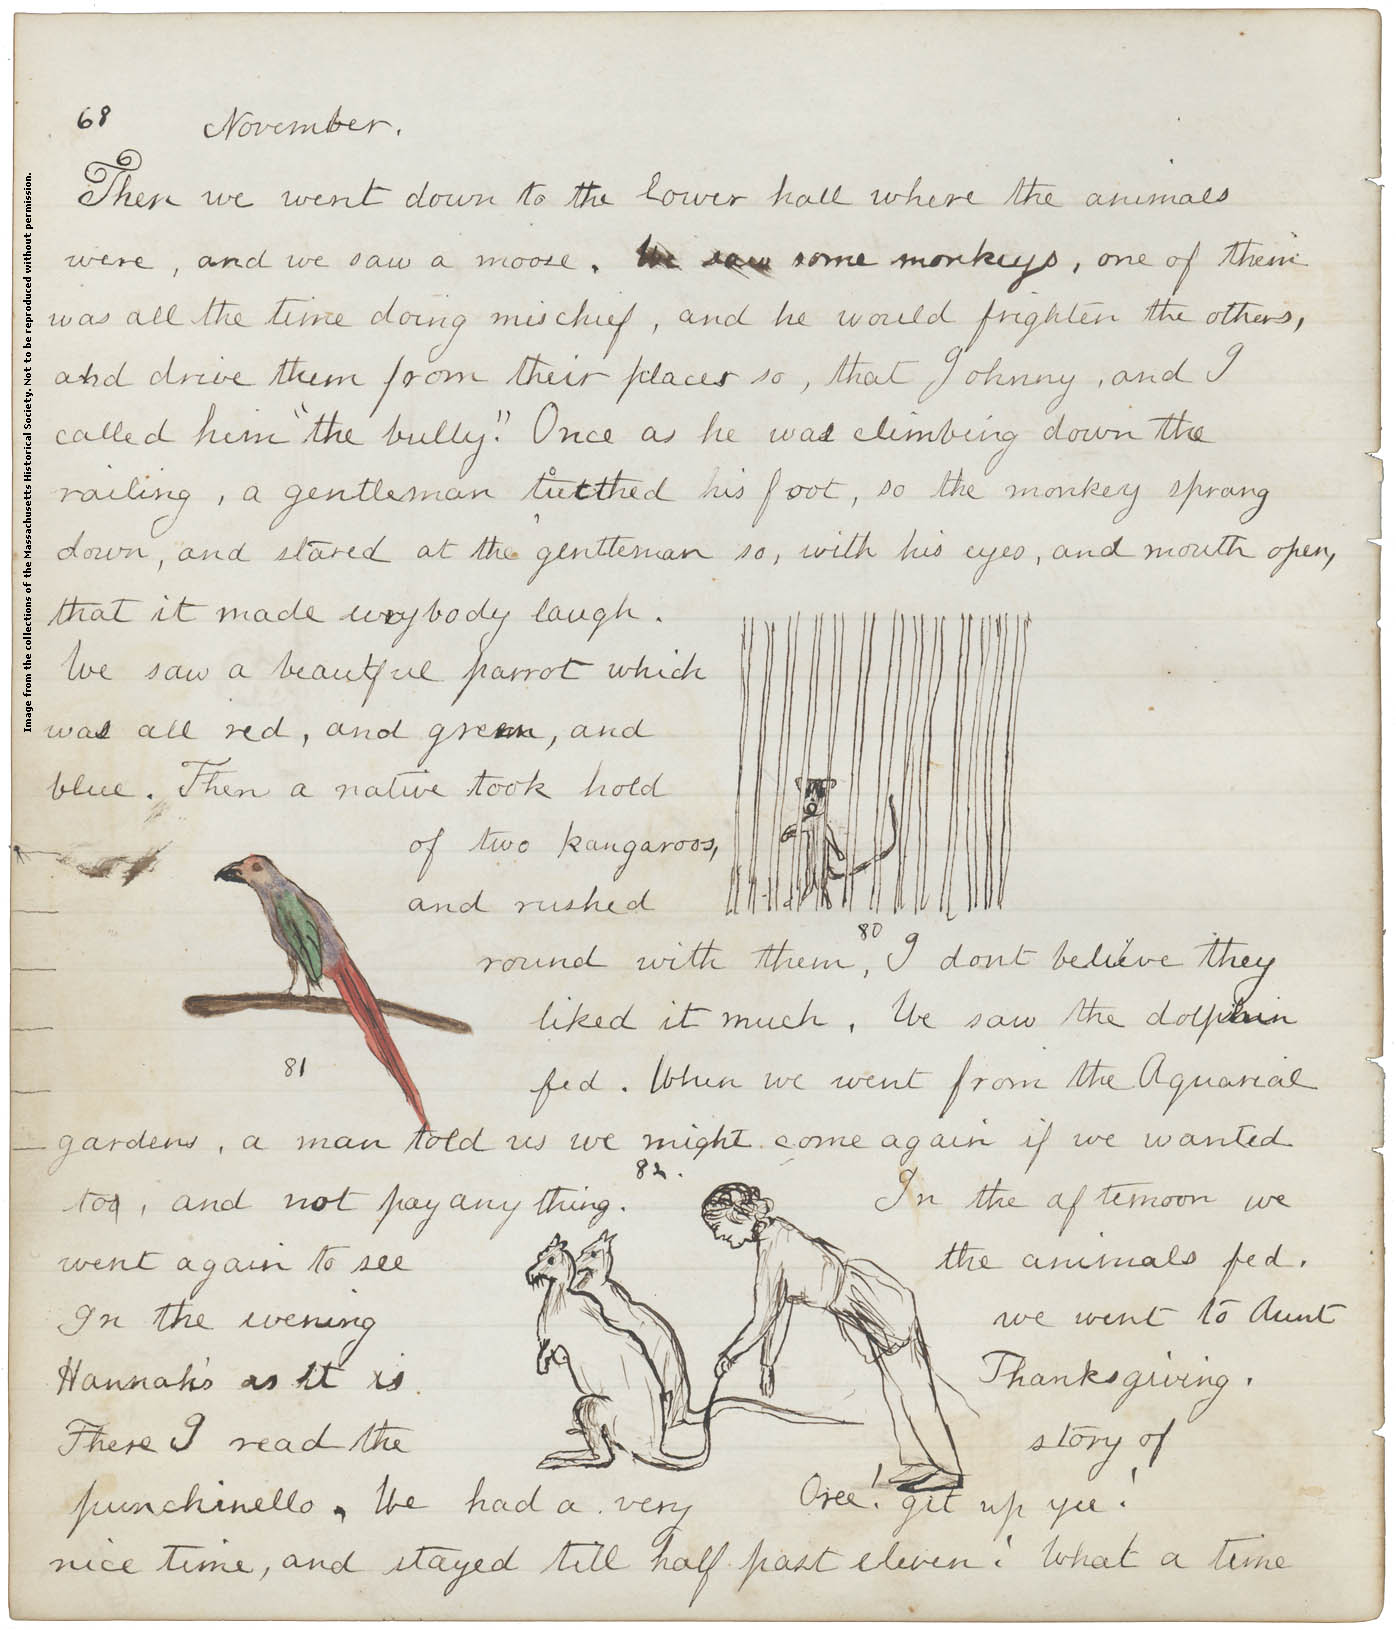 68 November.
Then we went down to the lower hall where the animals
were, and we saw a moose. We saw some monkeys, one of them
was all the time doing mischief, and he would frighten the others,
and drive them from their places so, that Johnny, and I
called him "the bully." Once as he was climbing down the
railing, a gentleman his foot, so the monkey sprang
down, and stared at the gentleman so, with his eyes, and mouth open,
that it made evrybody laugh.
We saw a beautful parrot which
was all red, and green, and
blue. Then a native took hold
of two kangaroos,
and rushed
80
round with them, I dont believe they
liked it much. We saw the dolphin
81
fed. When we went from the Aquarial
gardens, a man told us we might come again if we wanted
82.
too, and not pay any thing. In the afternoon we
went again to see the animals fed.
In the evening we went to Aunt
Hannah's as it is Thanksgiving.
There I read the story of
punchinello. We had a very
Oree! git up yee!
nice time, and stayed till half past eleven! What a time
Image from the collections of the Massachusetts Historical Society. Not to be reproduced without permission.